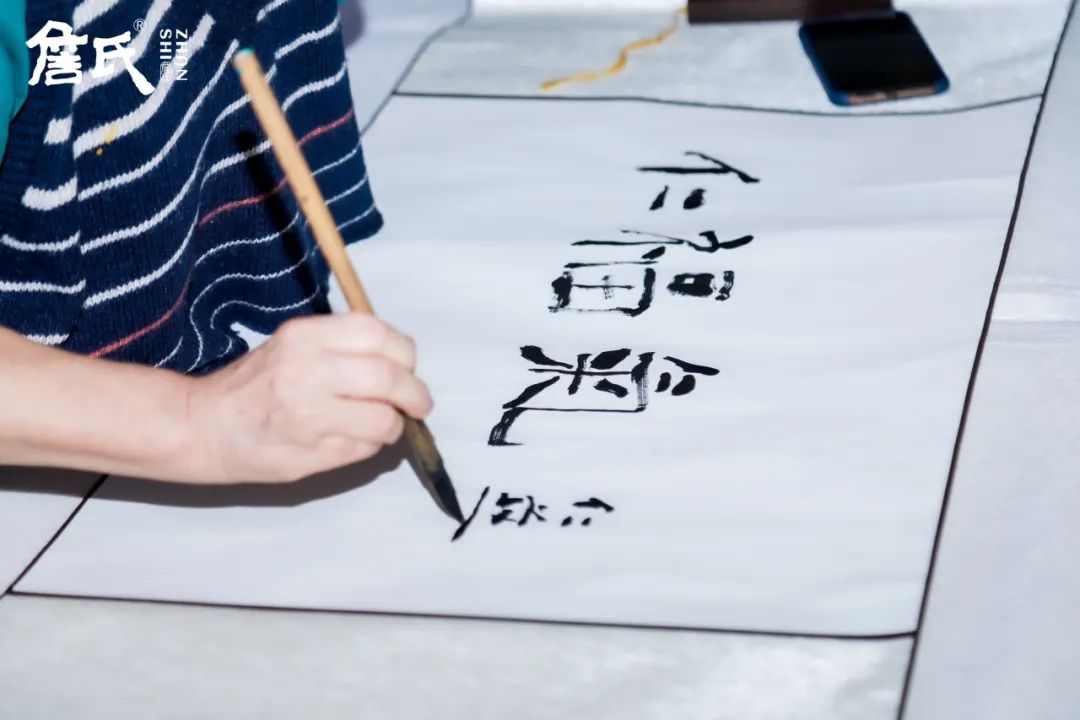 詹氏®
ZHAN
SHI
仁福氣